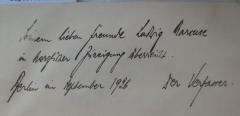 Seinem lieben Freunde Ludwig Marcuse
in herzlicher Zueignung überreicht.
Berlin im September 1926 Der Verfasser.